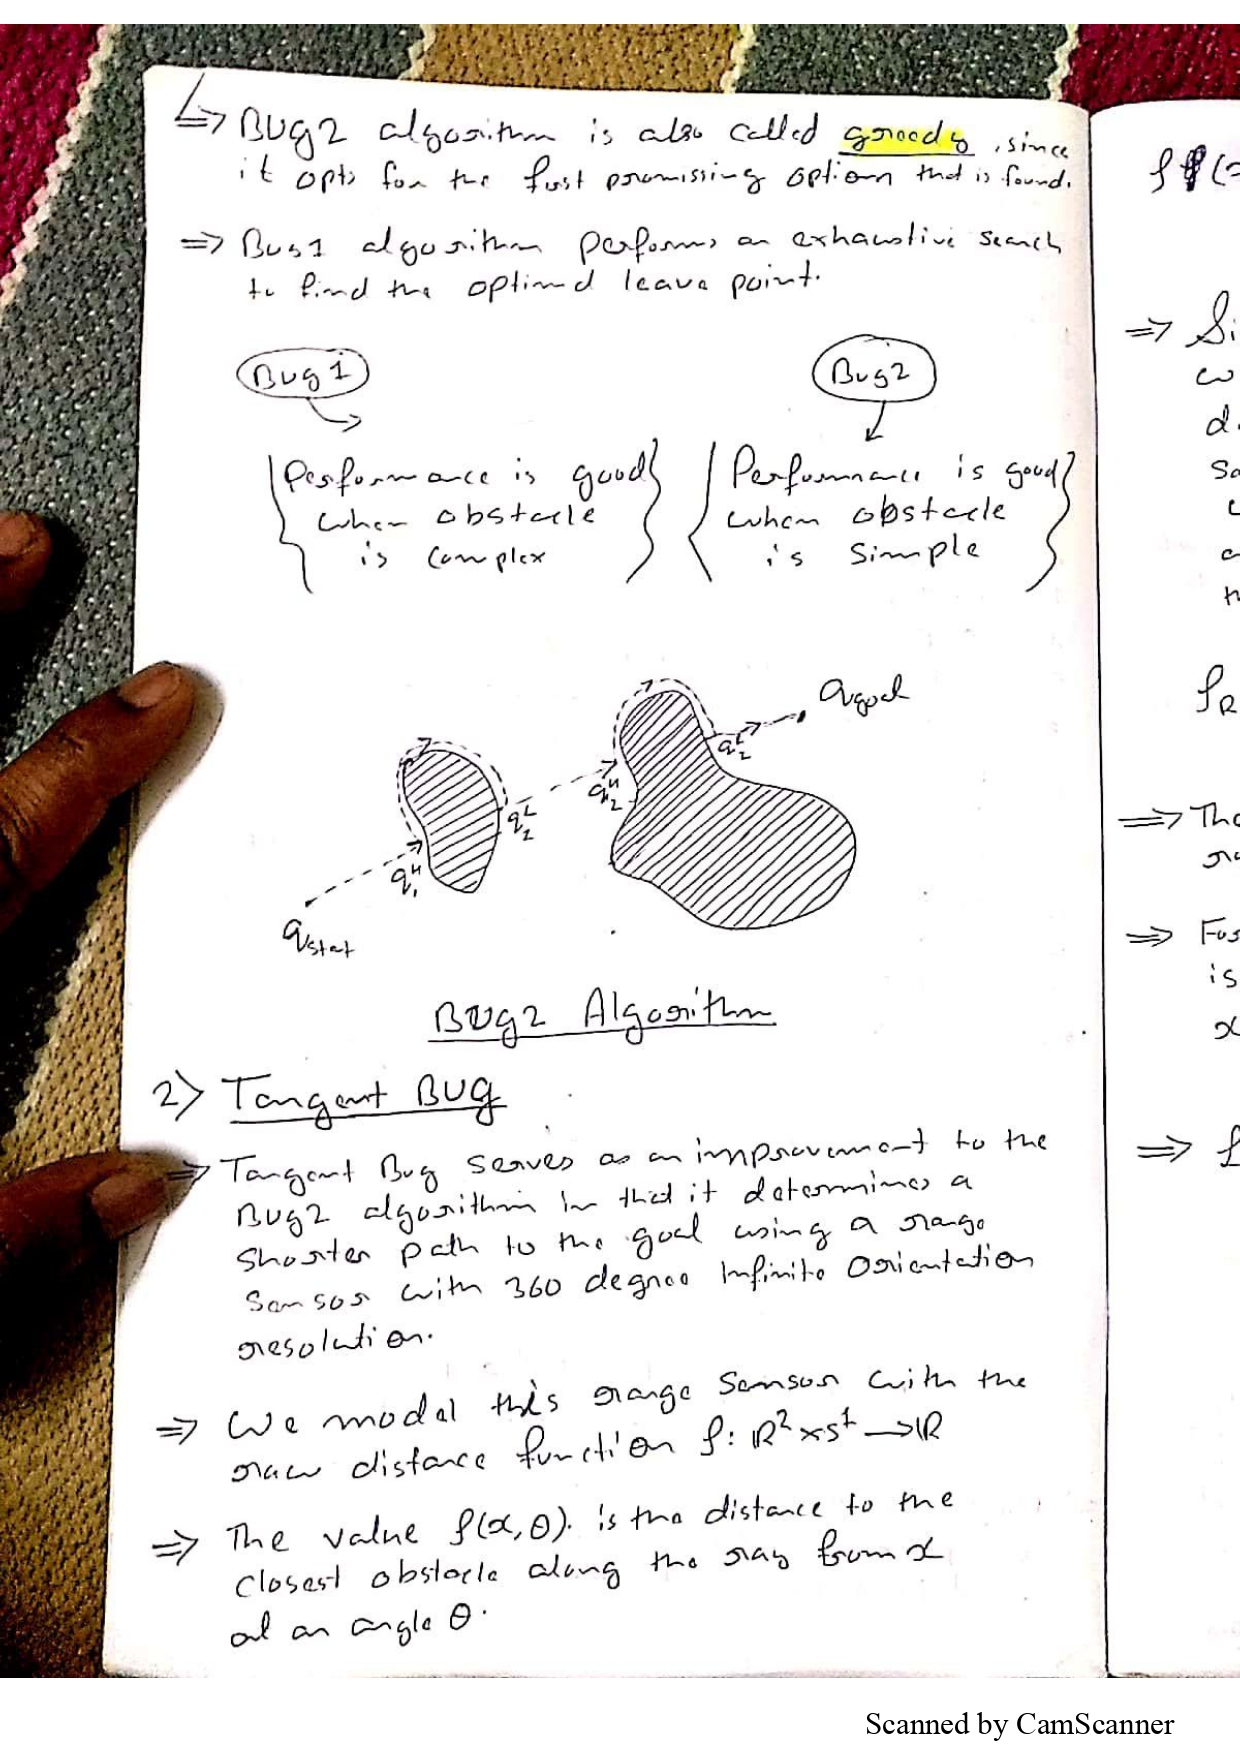 ↳ Bug2 algorithm is also called greedy, since
it opts for the first promissing option that is found.
⇒ Bug1 algorithm performs an exhaustive search
to find the optimal leave point.
Bug1
Bug2
Performance is good
when obstacle
is complex
Performance is good
when obstacle
is simple
q goal
q₂ᴸ
q₂ᴴ
q₂ᴸ
q₁ᴴ
q start
Bug2 Algorithm
2) Tangent BUG
⇒ Tangent Bug serves as an improvement to the
Bug2 algorithm in that it determines a
shorter path to the goal using a range
sensor with 360 degree infinite orientation
resolution.
⇒ We model this range sensor with the
raw distance function ρ: ℝ² × S¹ → ℝ
⇒ The value ρ(x, θ) is the distance to the
closest obstacle along the ray from x
at an angle θ.
⇒ Si
⇒ The
⇒ For
is
x
Scanned by CamScanner